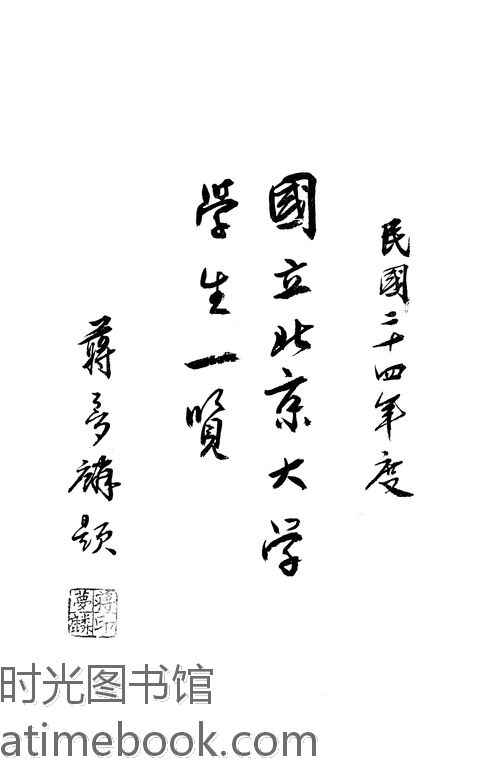 民國二十四年度
國立北京大学
學生一覽
蔣夢麟題
蔣印
夢麟
时光图书馆
atimebook.com